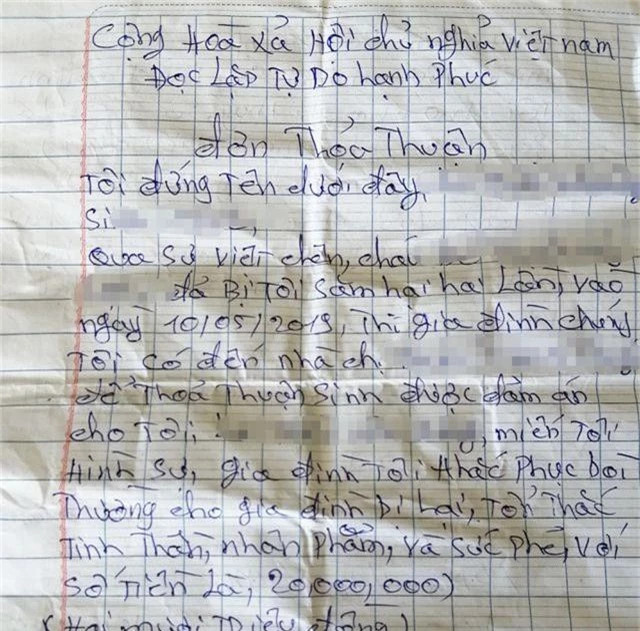 Cộng Hoà Xả Hội chủ nghỉa việt nam
Đọc Lập Tự Do hạnh Phúc
đơn Thỏa Thuận
Tôi đứng Tên dưới đây,
Si
Qua sự việt chên, cháu
đã Bị Tôi sâm hai hai Lần, vào
ngày 10/05/2019, Thì gia đình chúng
Tôi có đến nhà chị
để Thoả Thuận Sinh được đàm án
cho Tôi, miển Tôi
Hình sự, gia đình Tôi khắc Phục bồi
Thường cho gia đình bị hai, Tổn Thấc
Tinh Thần, nhân Phẩm, và sức Phẻ, với
số Tiền Là, 20,000,000)
(Hai mươi Triệu đồng)